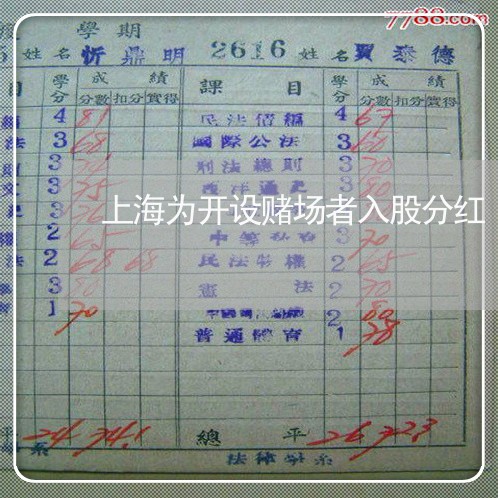 7788.com
學期
姓名 忻鼎明 2616 姓名 賈泰德
目 學分 成績 課目 學分 成績
分數 扣分 實得 分數 扣分 實得
4 81 民法債編 4 67
法 3 68 國際公法 3 60
3 刑法總則 3 70
3 75 西洋通史 3 80
上海为开设赌场者入股分红
2 65 3 70
法 2 68 68 民法物權 2 65
3 80 憲法 2 70
1 70 2 80
普通體育 1 78
平 24 74.1 總平 26 72.3
系 法律學系